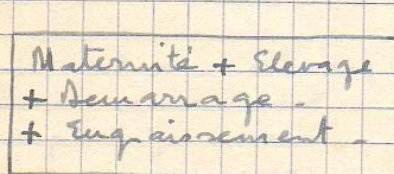 Maternité + Elevage
+ Demarrage.
+ Engraissement.